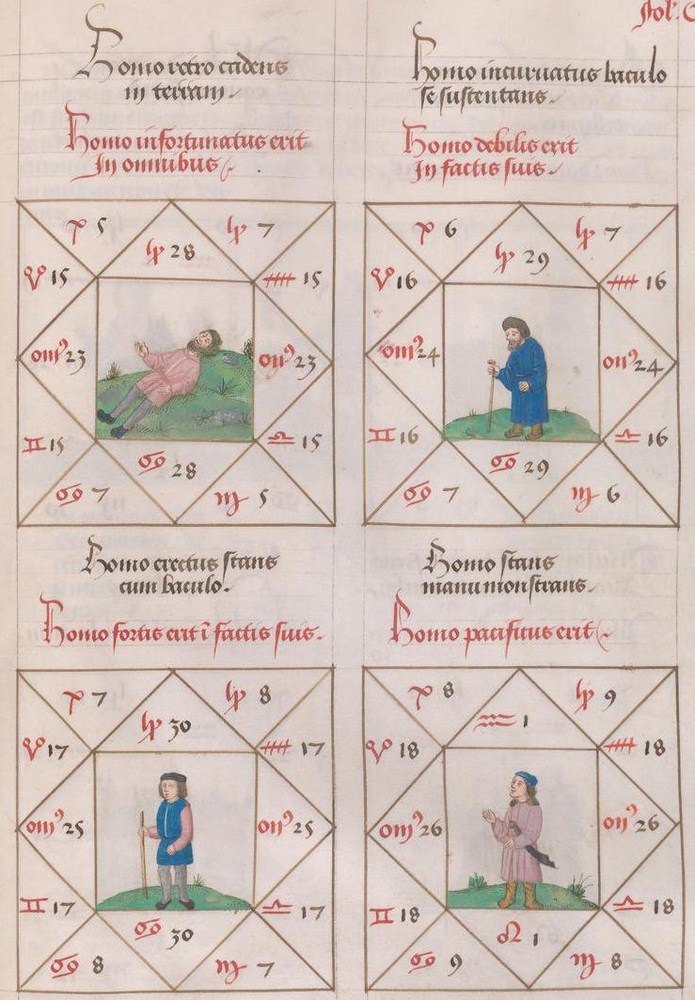 Joh: C
Homo retro cadens
in terram.
Homo infortunatus erit
In omnibus
Homo incuruatus baculo
se sustentans.
Homo debilis erit
In factis suis.
5
28
7
♉ 15
15
23
23
♊ 15
♎ 15
♋ 28
♋ 7
♏ 5
6
29
7
♉ 16
16
24
24
♊ 16
♎ 16
♋ 29
♋ 7
♏ 6
Homo erectus stans
cum baculo.
Homo fortis erit ī factis suis.
Homo stans
manu monstrans.
Homo pacificus erit
7
30
8
♉ 17
17
25
25
♊ 17
♎ 17
♋ 30
♋ 8
♏ 7
8
♒ 1
9
♉ 18
18
26
26
♊ 18
♎ 18
♌ 1
♋ 9
♏ 8